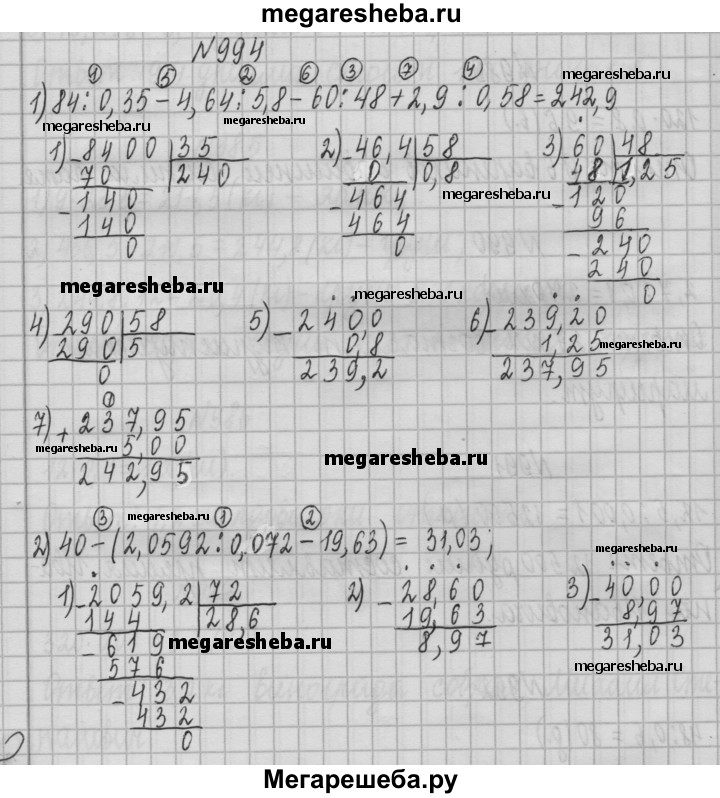 megaresheba.ru
N994
megaresheba.ru
1) 84:0,35-4,64:5,8-60:48+2,9:0,58=242,9
① ⑤ ② ⑥ ③ ⑦ ④
megaresheba.ru
megaresheba.ru
1) 8400 | 35
70 | 240
- 140
140
0
2) - 46,4 | 58
0 | 0,8
- 464
464
0
megaresheba.ru
3) - 60 | 48
48 | 1,25
- 120
96
- 240
240
0
megaresheba.ru
megaresheba.ru
4) 290 | 58
290 | 5
0
5) - 2400
0,8
239,2
6) - 239,20
1,25
237,95
megaresheba.ru
7) + 237,95
①
5,00
242,95
megaresheba.ru
megaresheba.ru
③ ① ②
megaresheba.ru
2) 40-(2,0592:0,072-19,63)= 31,03;
megaresheba.ru
1) - 2059,2 | 72
144 | 28,6
- 619
576
- 432
432
0
megaresheba.ru
2) - 28,60
19,63
8,97
3) - 40,00
8,97
31,03
megaresheba.ru
Мегарешеба.ру